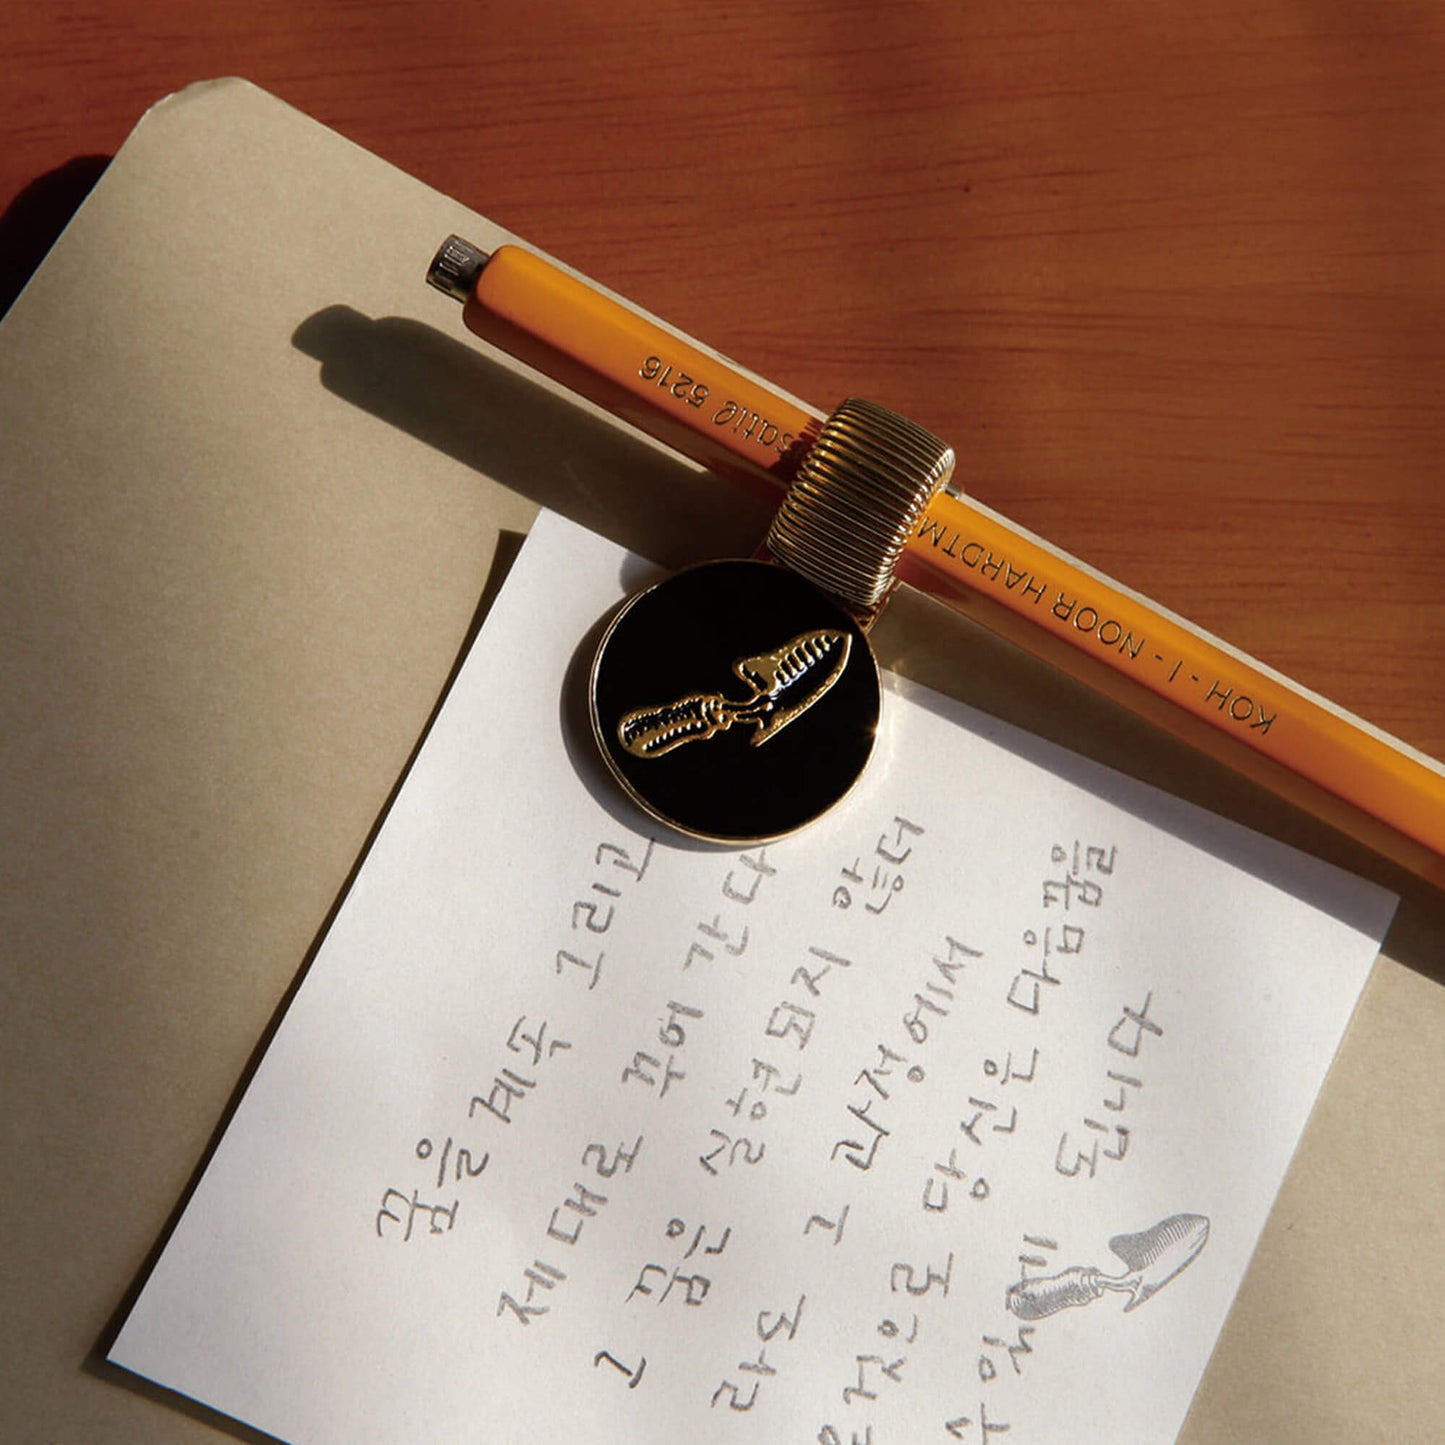 KOH-I-NOOR HARDTM
satil 5216
꿈을 계속 그리고
제대로 꾸어 간다
그 꿈은 실현되지 않더
라도 그 과정에서
당신은 다음 꿈을
됩니다